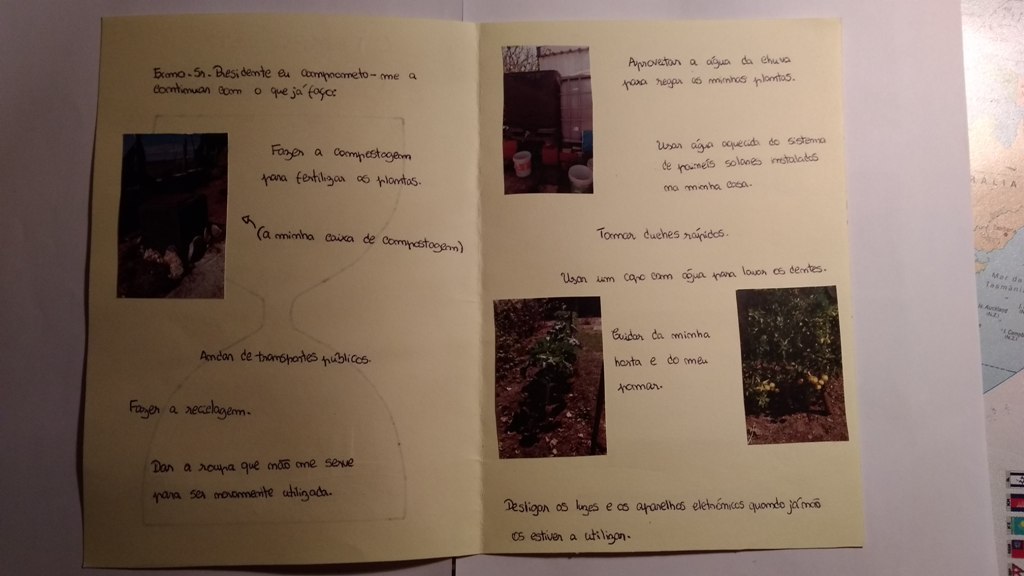 Exmo. Sr. Presidente eu comprometo-me a
continuar com o que já faço:
Fazer a compostagem
para fertilizar as plantas.
(a minha caixa de compostagem)
Andar de transportes públicos.
Fazer a reciclagem.
Dar a roupa que não me serve
para ser novamente utilizada.
Aproveitar a água da chuva
para regar as minhas plantas.
Usar água aquecida do sistema
de painéis solares instalados
na minha casa.
Tomar duches rápidos.
Usar um copo com água para lavar os dentes.
Cuidar da minha
horta e do meu
pomar.
Desligar as luzes e os aparelhos eletrónicos quando já não
os estiver a utilizar.
Mar da